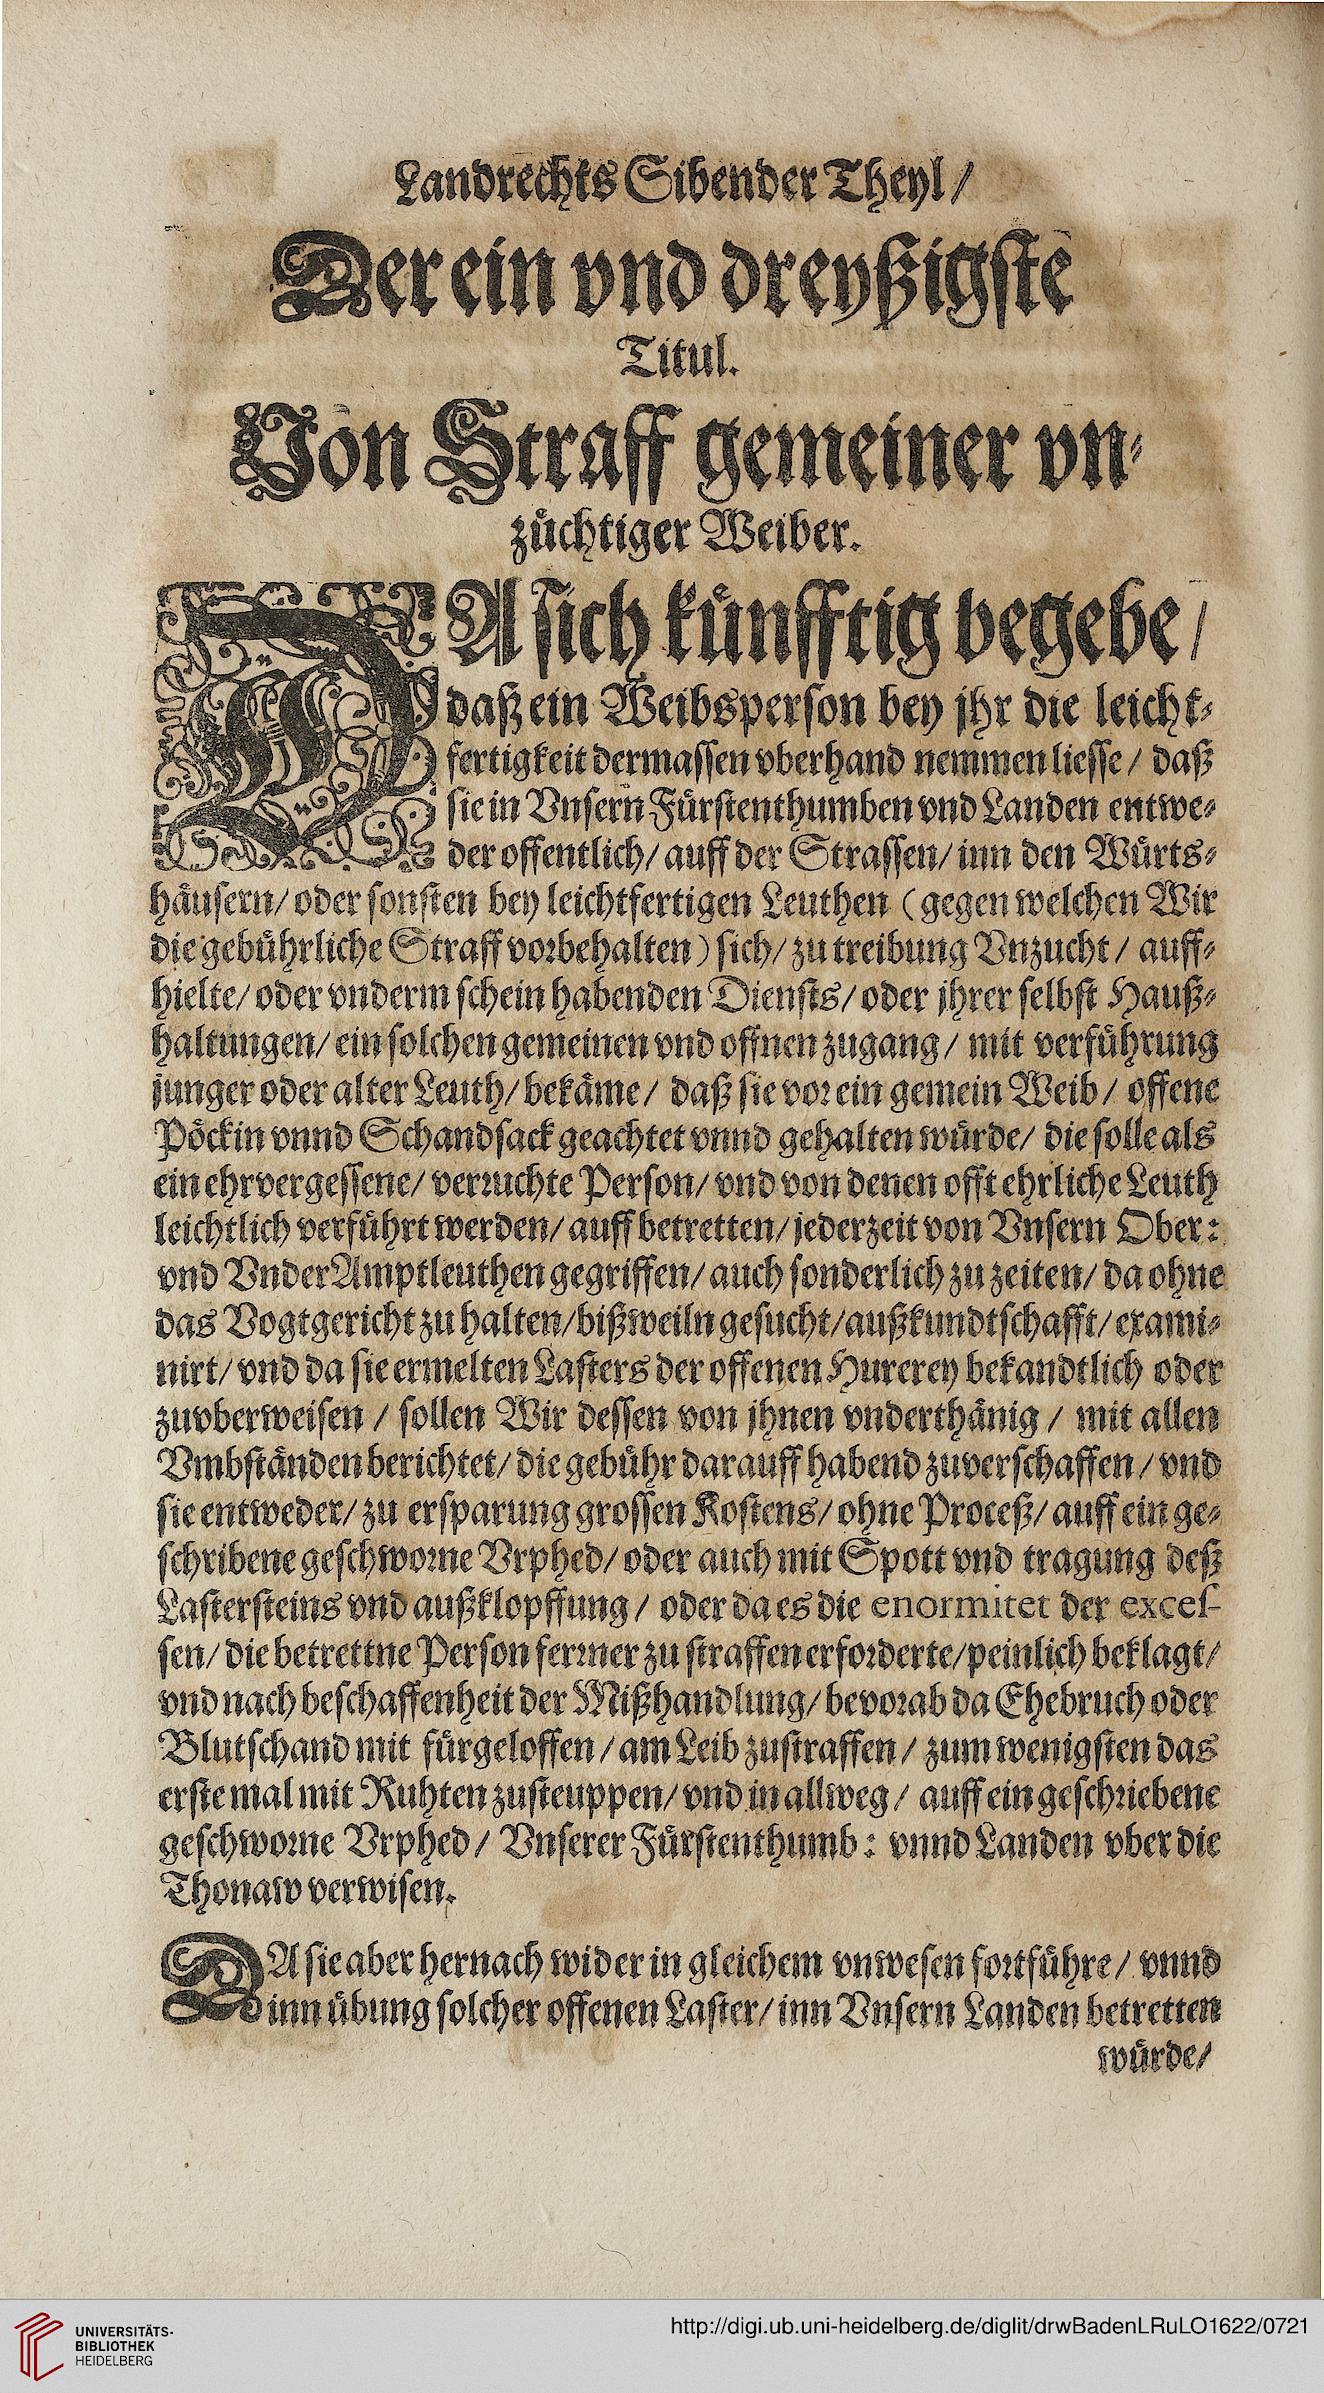 Landrechts Sibender Theyl /
Der ein vnd dreyßigste
Titul.
Von Straff gemeiner vn-
züchtiger Weiber.
DA sich künfftig begebe /
daß ein Weibsperson bey jhr die leicht-
fertigkeit dermassen vberhand nemmen liesse / daß
sie in Vnsern Fürstenthumben vnd Landen entwe-
der offentlich / auff der Strassen / inn den Würts-
häusern / oder sonsten bey leichtfertigen Leuthen (gegen welchen Wir
die gebührliche Straff vorbehalten) sich / zu treibung Vnzucht / auff-
hielte / oder vnderm schein habenden Diensts / oder jhrer selbst Hauß-
haltungen / ein solchen gemeinen vnd offnen zugang / mit verführung
junger oder alter Leuth / bekäme / daß sie vor ein gemein Weib / offene
Pöckin vnnd Schandsack geachtet vnnd gehalten würde / die solle als
ein ehrvergessene / verruchte Person / vnd von denen offt ehrliche Leuth
leichtlich verführt werden / auff betretten / jederzeit von Vnsern Ober:
vnd VnderAmptleuthen gegriffen / auch sonderlich zu zeiten / da ohne
das Vogtgericht zu halten / bißweiln gesucht / außkundtschafft / exami-
nirt / vnd da sie ermelten Lasters der offenen Hurerey bekandtlich oder
zuvberweisen / sollen Wir dessen von jhnen vnderthänig / mit allen
Vmbständen berichtet / die gebühr darauff habend zuverschaffen / vnd
sie entweder / zu ersparung grossen Kostens / ohne Proceß / auff ein ge-
schribene geschworne Vrphed / oder auch mit Spott vnd tragung deß
Lastersteins vnd außklopffung / oder da es die enormitet der exces-
sen / die betrettne Person ferrner zu straffen erforderte / peinlich beklagt /
vnd nach beschaffenheit der Mißhandlung / bevorab da Ehebruch oder
Blutschand mit fürgeloffen / am Leib zustraffen / zum wenigsten das
erste mal mit Ruhten zusteuppen / vnd in allweg / auff ein geschriebene
geschworne Vrphed / Vnserer Fürstenthumb: vnnd Landen vber die
Thonaw verwisen.
DA sie aber hernach wider in gleichem vnwesen fortführe / vnnd
inn übung solcher offenen Laster / inn Vnsern Landen betretten
würde /
UNIVERSITÄTS-
BIBLIOTHEK
HEIDELBERG
http://digi.ub.uni-heidelberg.de/diglit/drwBadenLRuLO1622/0721